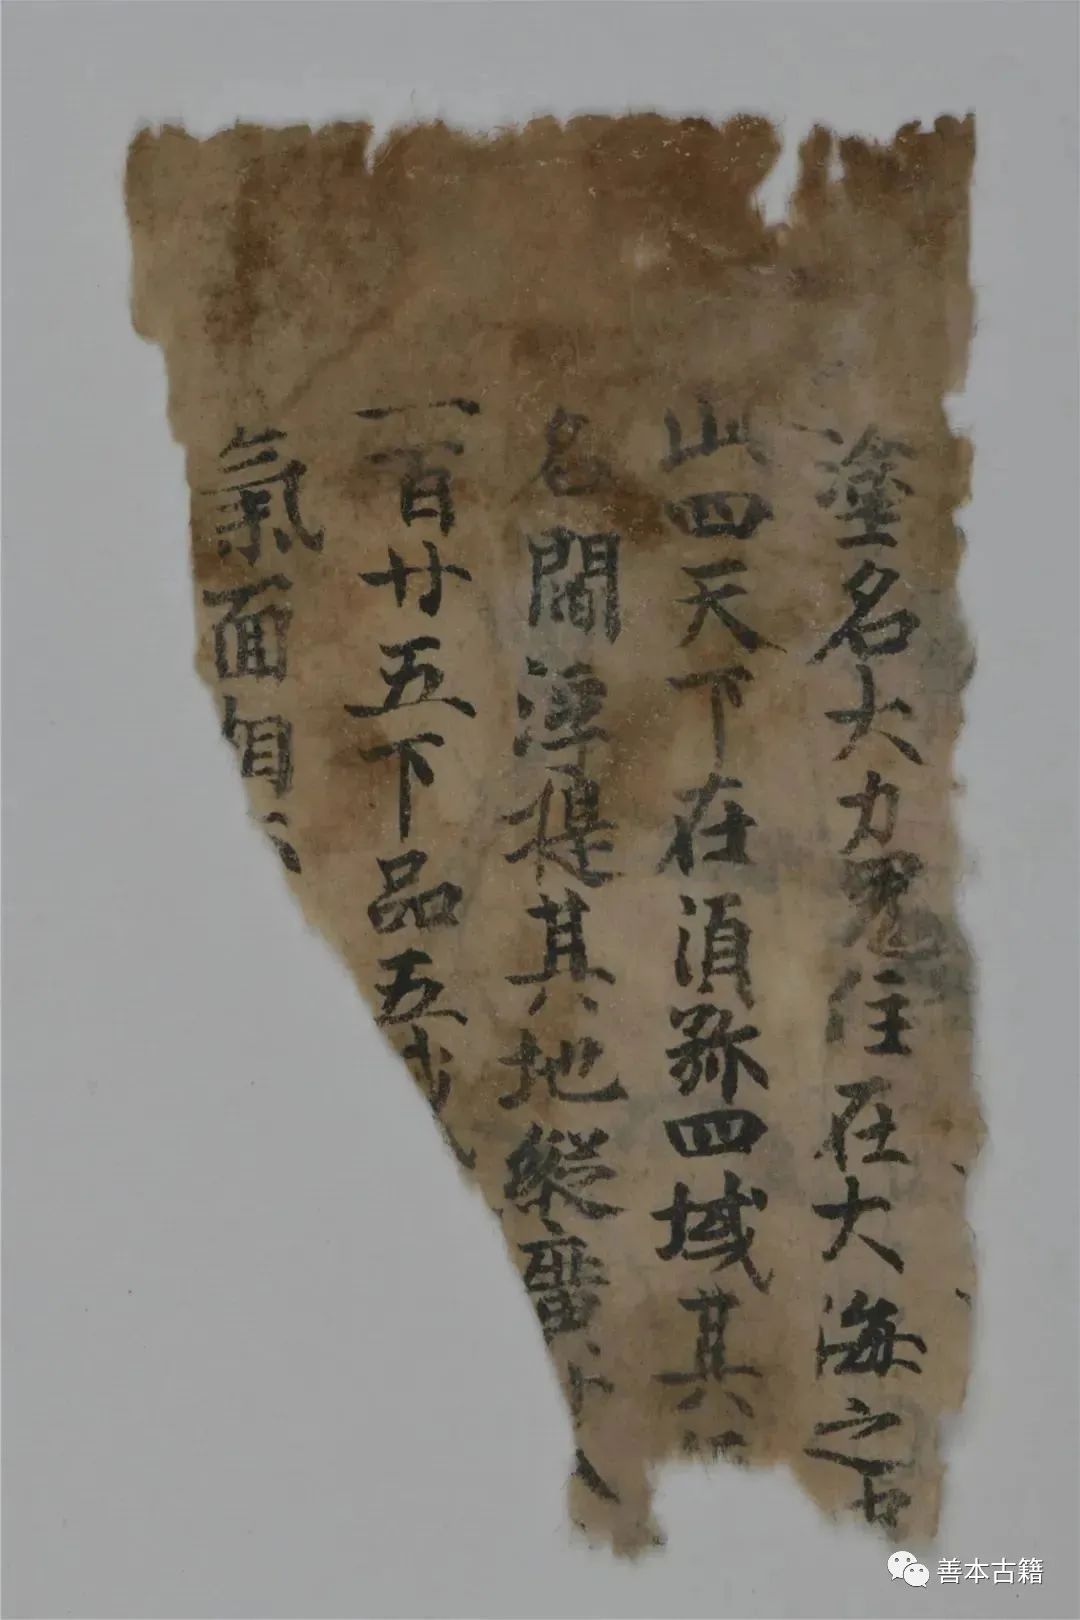 塗名大力鬼住在大海之
山四天下在須弥四域其
名閻浮提其地縱廣
一百廿五下品五戒
氣面
善本古籍